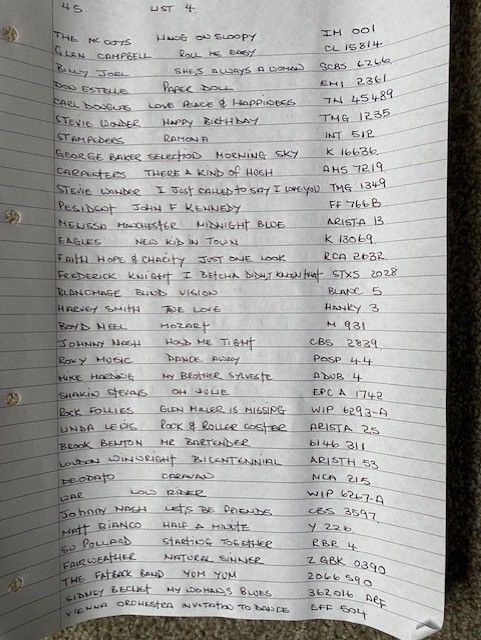 45 LIST 4
THE MCCOYS HANG ON SLOOPY IM 001
GLEN CAMPBELL ROLL ME EASY CL 15814
BILLY JOEL SHE'S ALWAYS A WOMAN SCBS 6266
DON ESTELLE PAPER DOLL EMI 2361
CARL DOUGLAS LOVE PEACE & HAPPINESS 7N 45489
STEVIE WONDER HAPPY BIRTHDAY TMG 1235
STAMPEDERS RAMONA INT 512
GEORGE BAKER SELECTION MORNING SKY K 16636
CARPENTERS THERE A KIND OF HUSH AMS 7219
STEVIE WONDER I JUST CALLED TO SAY I LOVE YOU TMG 1349
PESIDENT JOHN F KENNEDY FF 766B
MELISSA MANCHESTER MIDNIGHT BLUE ARISTA 13
EAGLES NEW KID IN TOWN K 13069
FAITH HOPE & CHARITY JUST ONE LOOK RCA 2632
FREDERICK KNIGHT I BETCHA DIDN'T KNOW THAT STXS 2028
BLANCMAGE BLIND VISION BLANC 5
HARVEY SMITH TRUE LOVE HANKY 3
BOYD NEEL MOZART M 931
JOHNNY NASH HOLD ME TIGHT CBS 2839
ROXY MUSIC DANCE AWAY POSP 44
MIKE HARDING MY BROTHER SYLVESTE ADUB 4
SHAKIN STEVENS OH JULIE EPC A 1742
ROCK FOLLIES GLEN MILLER IS MISSING WIP 6293-A
LINDA LEWIS ROCK & ROLLER COSTER ARISTA 25
BROOK BENTON MR BARTENDER 6146 311
LOUDON WINWRIGHT BICENTENNIAL ARISTH 53
DEODATO CARAVAN MCA 215
WAR LOW RIDER WIP 6267-A
JOHNNY NASH LET'S BE FRIENDS CBS 3597
MATT BIANCO HALF A MINUTE Y 226
SU POLLARD STARTING TOGETHER RBR 4
FAIRWEATHER NATURAL SINNER Z GBK 0390
THE FATBACK BAND YUM YUM 2066 590
SIDNEY BECHET MY WOMANS BLUES 362016 ARF
VIENNA ORCHESTRA INVITATION TO DANCE EFF 504